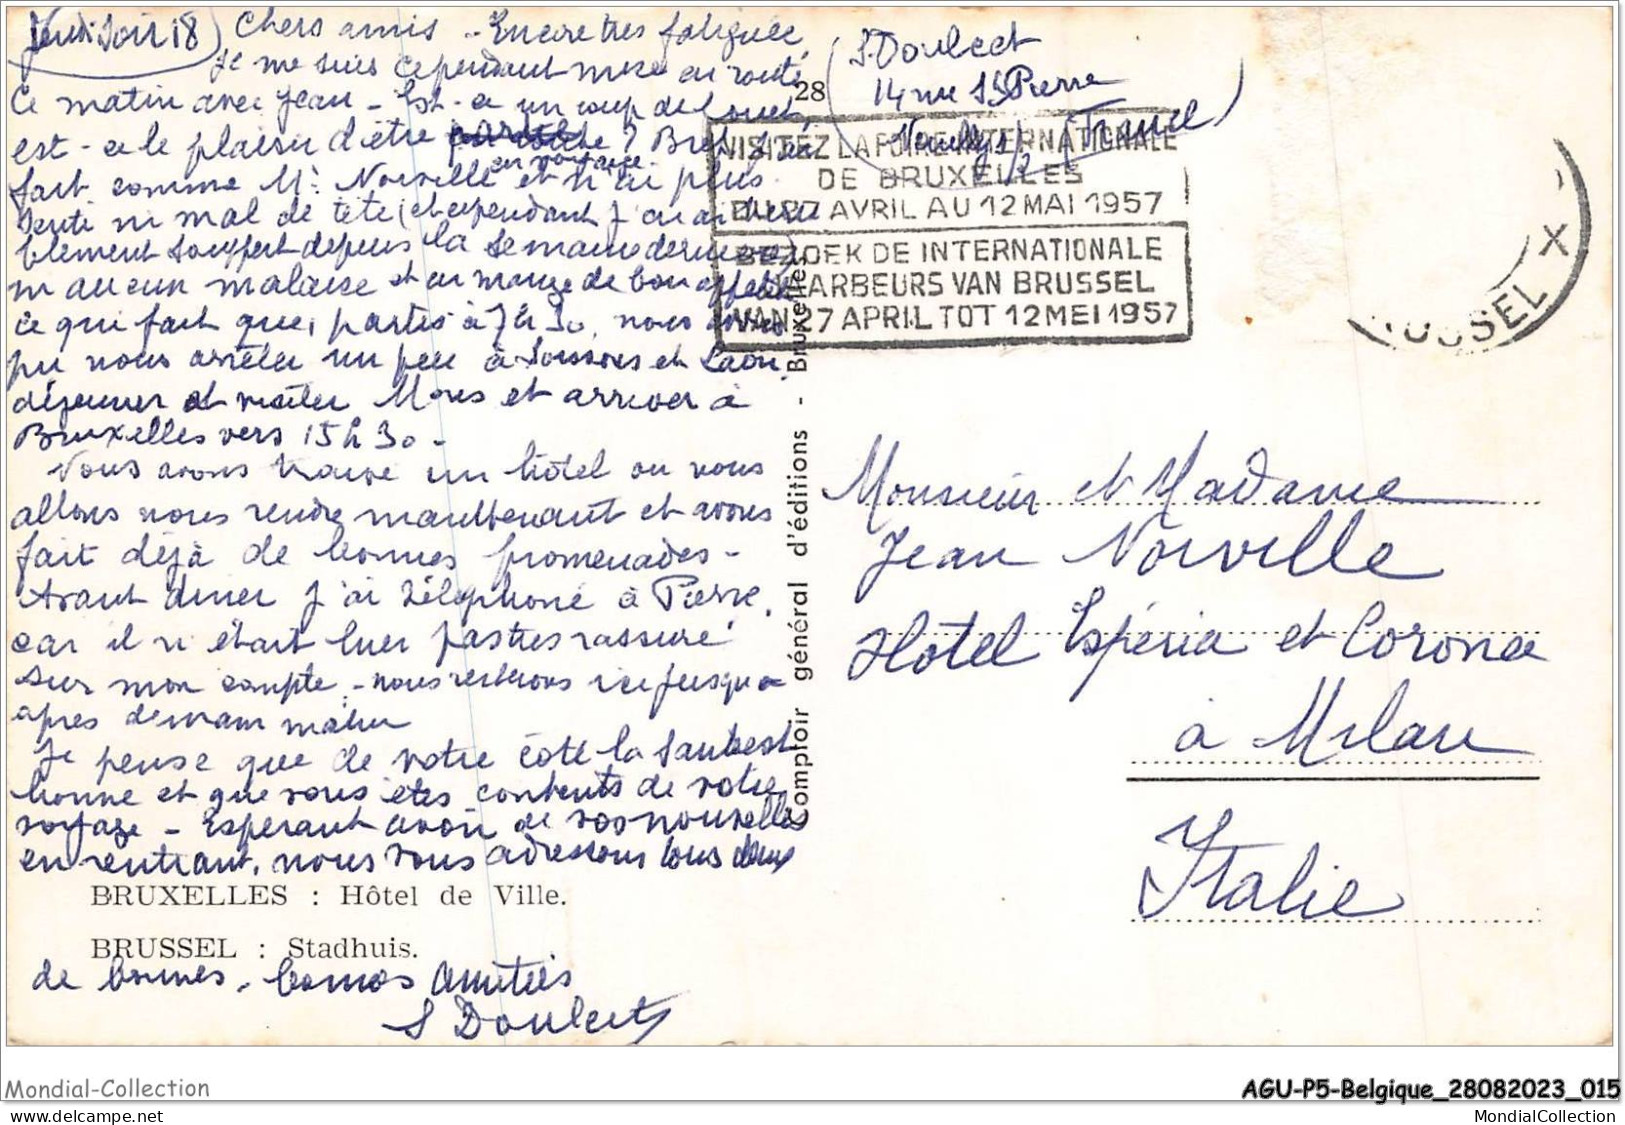 Jeudi soir 18 Chers amis - Encore très fatiguée,
je me suis cependant mise en route
ce matin avec Jean - Est-ce un coup de fouet,
est-ce le plaisir d'être ? Bref j'ai
en voyage
fait comme Mr. Norville et n'ai plus
senti ni mal de tête (et cependant j'en ai
blement souffert depuis la semaine dernière)
ni aucun malaise et ai mangé de bon appétit
ce qui fait que, partis à 7h30, nous avons
pu nous arrêter un peu à Soissons et Laon,
déjeuner et visiter Mons et arriver à
Bruxelles vers 15h30-
Nous avons trouvé un hôtel où nous
allons nous rendre maintenant et avons
fait déjà de bonnes promenades-
Avant diner j'ai téléphoné à Pierre,
car il n'était hier pas très rassuré
sur mon compte - nous resterons ici jusqu'à
après demain matin
Je pense que de votre côté la santé est
bonne et que vous êtes contents de votre
voyage - Espérant avoir de vos nouvelles
en rentrant, nous vous adressons tous deux
BRUXELLES : Hôtel de Ville.
BRUSSEL : Stadhuis.
de bonnes, bonnes amitiés
S Doulcet
Comptoir général d'éditions - Bruxelles
28
S. Doulcet
14 rue St Pierre
Neuilly s/ (France)
VISITEZ LA FOIRE INTERNATIONALE
DE BRUXELLES
DU 27 AVRIL AU 12 MAI 1957
BEZOEK DE INTERNATIONALE
JAARBEURS VAN BRUSSEL
VAN 27 APRIL TOT 12 MEI 1957
BRUSSEL X
Monsieur et Madame
Jean Norville
Hôtel Espéria et Corona
à Milan
Italie
Mondial-Collection
AGU-P5-Belgique_28082023_015
© delcampe.net
MondialCollection